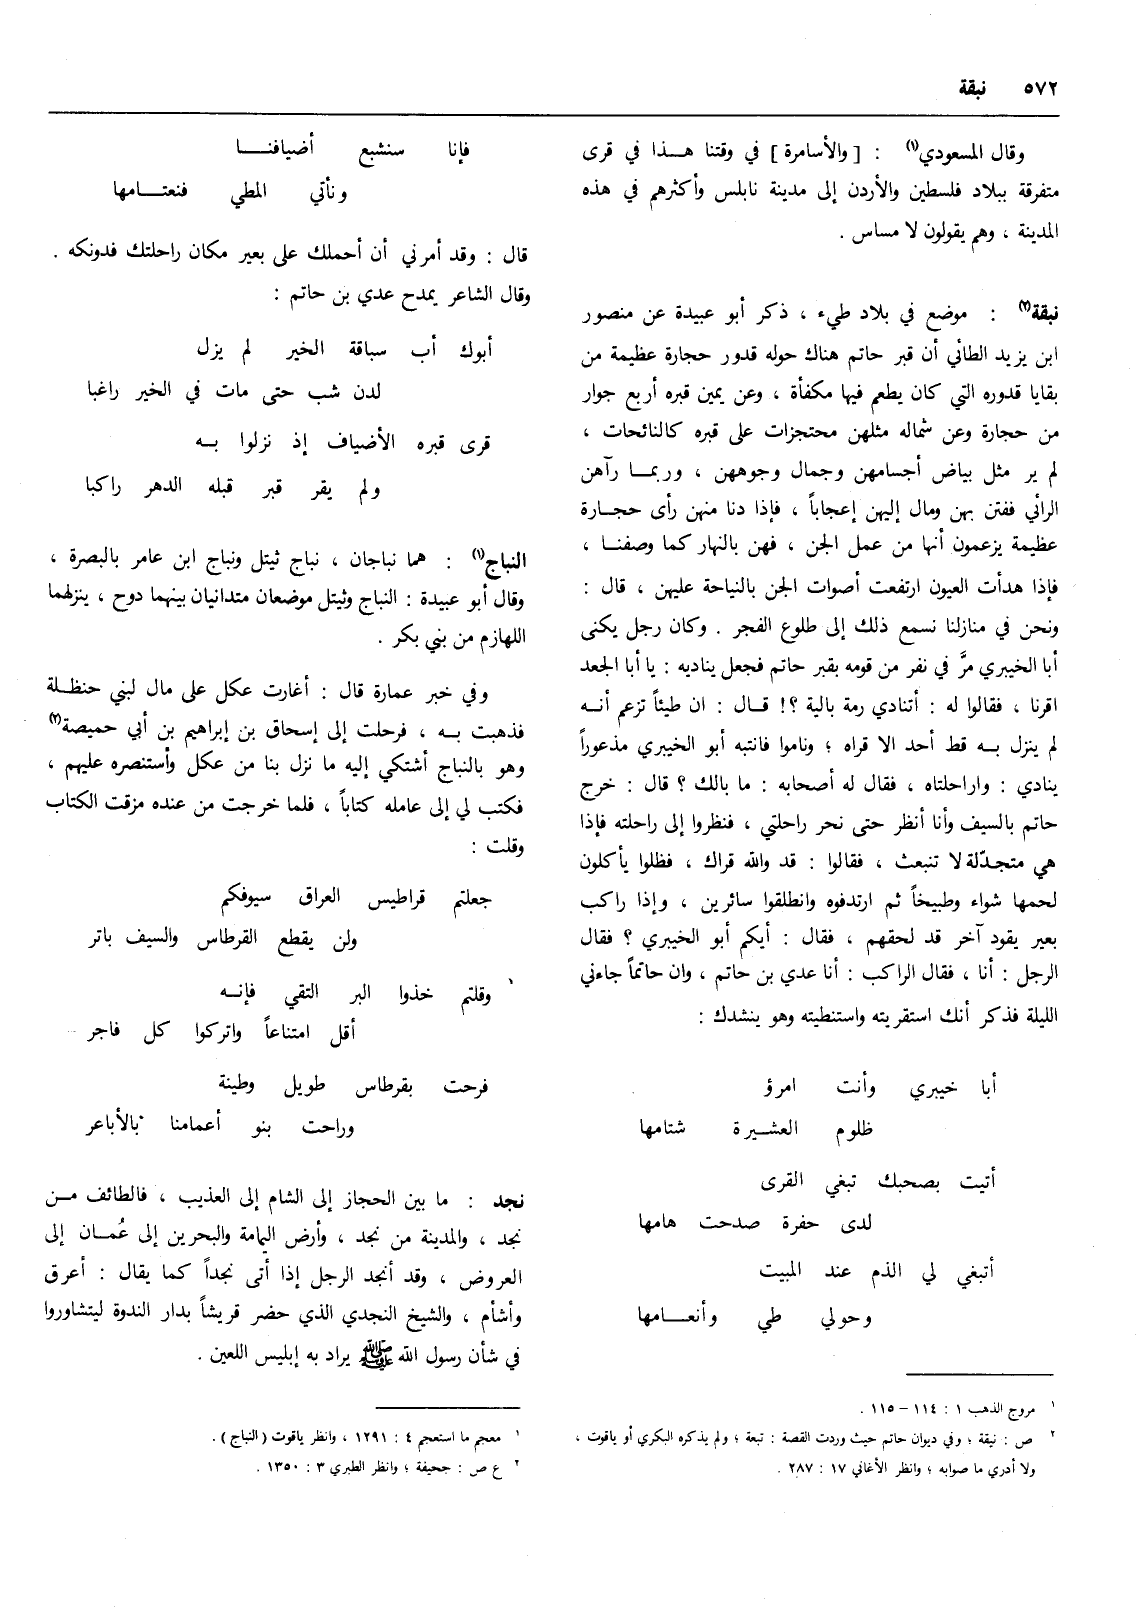 ٥٧٢ نبقة
وقال المسعودي(١) : [ والأسامرة ] في وقتنا هـــذا في قرى
متفرقة ببلاد فلسطين والأردن إلى مدينة نابلس وأكثرهم في هذه
المدينة ، وهم يقولون لا مساس .
نبقة(٢) : موضع في بلاد طيء ، ذكر أبو عبيدة عن منصور
ابن يزيد الطائي أن قبر حاتم هناك حوله قدور حجارة عظيمة من
بقايا قدوره التي كان يطعم فيها مكفأة ، وعن يمين قبره أربع جوار
من حجارة وعن شماله مثلهن محتجزات على قبره كالنائحات ،
لم ير مثل بياض أجسامهن وجمال وجوههن ، وربمـــا رآهن
الرائي ففتن بهن ومال إليهن إعجاباً ، فإذا دنا منهن رأى حجــارة
عظيمة يزعمون أنها من عمل الجن ، فهن بالنهار كما وصفنـــا ،
فإذا هدأت العيون ارتفعت أصوات الجن بالنياحة عليهن ، قال :
ونحن في منازلنا نسمع ذلك إلى طلوع الفجر . وكان رجل يكنى
أبا الخيبري مرَّ في نفر من قومه بقبر حاتم فجعل يناديه : يا أبا الجعد
اقرنا ، فقالوا له : أتنادي رمة بالية ؟! قــال : ان طيئاً تزعم أنــه
لم ينزل بــه قط أحد الا قراه ؛ وناموا فانتبه أبو الخيبري مذعوراً
ينادي : واراحلتاه ، فقال له أصحابه : ما بالك ؟ قال : خرج
حاتم بالسيف وأنا أنظر حتى نحر راحلتي ، فنظروا إلى راحلته فإذا
هي متجدّلة لا تنبعث ، فقالوا : قد والله قراك ، فظلوا يأكلون
لحمها شواء وطبيخاً ثم ارتدفوه وانطلقوا سائرين ، وإذا راكب
بعير يقود آخر قد لحقهم ، فقال : أيكم أبو الخيبري ؟ فقال
الرجل : أنا ، فقال الراكب : أنا عدي بن حاتم ، وان حاتماً جاءني
الليلة فذكر أنك استقريته واستنطيته وهو ينشدك :
أبا خيبري وأنت امرؤ
ظلوم العشـــيرة شتامها
أتيت بصحبك تبغي القرى
لدى حفرة صدحت هامها
أتبغي لي الذم عند المبيت
وحولي طي وأنعـــامها
١ مروج الذهب ١ : ١١٤ - ١١٥ .
٢ ص : نيقة ؛ وفي ديوان حاتم حيث وردت القصة : تبعة ؛ ولم يذكره البكري أو ياقوت ،
ولا أدري ما صوابه ؛ وانظر الأغاني ١٧ : ٢٨٧ .
فإنا سنشبع أضيافنـــا
ونأتي المطي فنعتـــامها
قال : وقد أمرني أن أحملك على بعير مكان راحلتك فدونكه .
وقال الشاعر يمدح عدي بن حاتم :
أبوك أب سباقة الخير لم يزل
لدن شب حتى مات في الخير راغبا
قرى قبره الأضياف إذ نزلوا بــه
ولم يقر قبر قبله الدهر راكبا
النباج(١) : هما نباجان ، نباج ثيتل ونباج ابن عامر بالبصرة ،
وقال أبو عبيدة : النباج وثيتل موضعان متدانيان بينهما دوح ، ينزلهما
اللهازم من بني بكر .
وفي خبر عمارة قال : أغارت عكل على مال لبني حنظــلة
فذهبت بــه ، فرحلت إلى إسحاق بن إبراهيم بن أبي حميصة(٢)
وهو بالنباج أشتكي إليه ما نزل بنا من عكل وأستنصره عليهم ،
فكتب لي إلى عامله كتاباً ، فلما خرجت من عنده مزقت الكتاب
وقلت :
جعلتم قراطيس العراق سيوفكم
ولن يقطع القرطاس والسيف باتر
وقلتم خذوا البر التقي فإنــه
أقل امتناعاً واتركوا كل فاجر
فرحت بقرطاس طويل وطينة
وراحت بنو أعمامنا بالأباعر
نجد : ما بين الحجاز إلى الشام إلى العذيب ، فالطائف مــن
نجد ، والمدينة من نجد ، وأرض اليمامة والبحرين إلى عُمــان إلى
العروض ، وقد أنجد الرجل إذا أتى نجداً كما يقال : أعرق
وأشأم ، والشيخ النجدي الذي حضر قريشاً بدار الندوة ليتشاوروا
في شأن رسول الله ﷺ يراد به إبليس اللعين .
١ معجم ما استعجم ٤ : ١٢٩١ ، وانظر ياقوت ( النباج ) .
٢ ع ص : جحيفة ؛ وانظر الطبري ٣ : ١٣٥٠ .